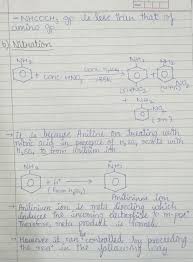 -NHCOCH3 gp is less than that of
amino gp.
b) Nitration
NH2
NH2
NH2
+ conc. HNO3
conc. H2SO4
+
NO2
NO2
(51%)
+
NH2
NO2
→ It is because Aniline on treating with
nitric acid in presence of H2SO4 reacts with
H2SO4 to form anilinium ion.
NH2
+ H+
(from H2SO4)
Anilinium ion
→ Anilinium ion is meta directing which
the incoming electrophile
Therefore, meta product is formed
→ However it can controlled by proceeding
the rxn in the following way